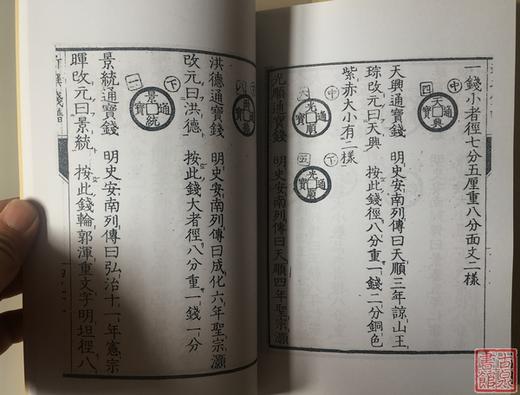 一錢小者徑七分五厘重八分面文二樣
四
中
天興通寶
天興通寶錢 明史安南列傳曰天順三年諒山王
琮改元曰天興 按此錢徑八分重一錢二分銅色
紫赤大小有二樣
六
中
光順通寶
五
下
光順通寶
光順通寶錢 明史安南列傳曰天順四年聖宗灝
四
洪德通寶錢 明史安南列傳曰成化六年聖宗灝
改元曰洪德 按此錢大者徑八分重一錢一分
一
下
景統通寶
景統通寶錢 明史安南列傳曰弘治十一年憲宗
暉改元曰景統 按此錢輪郭渾重文字明坦徑八
古泉書館